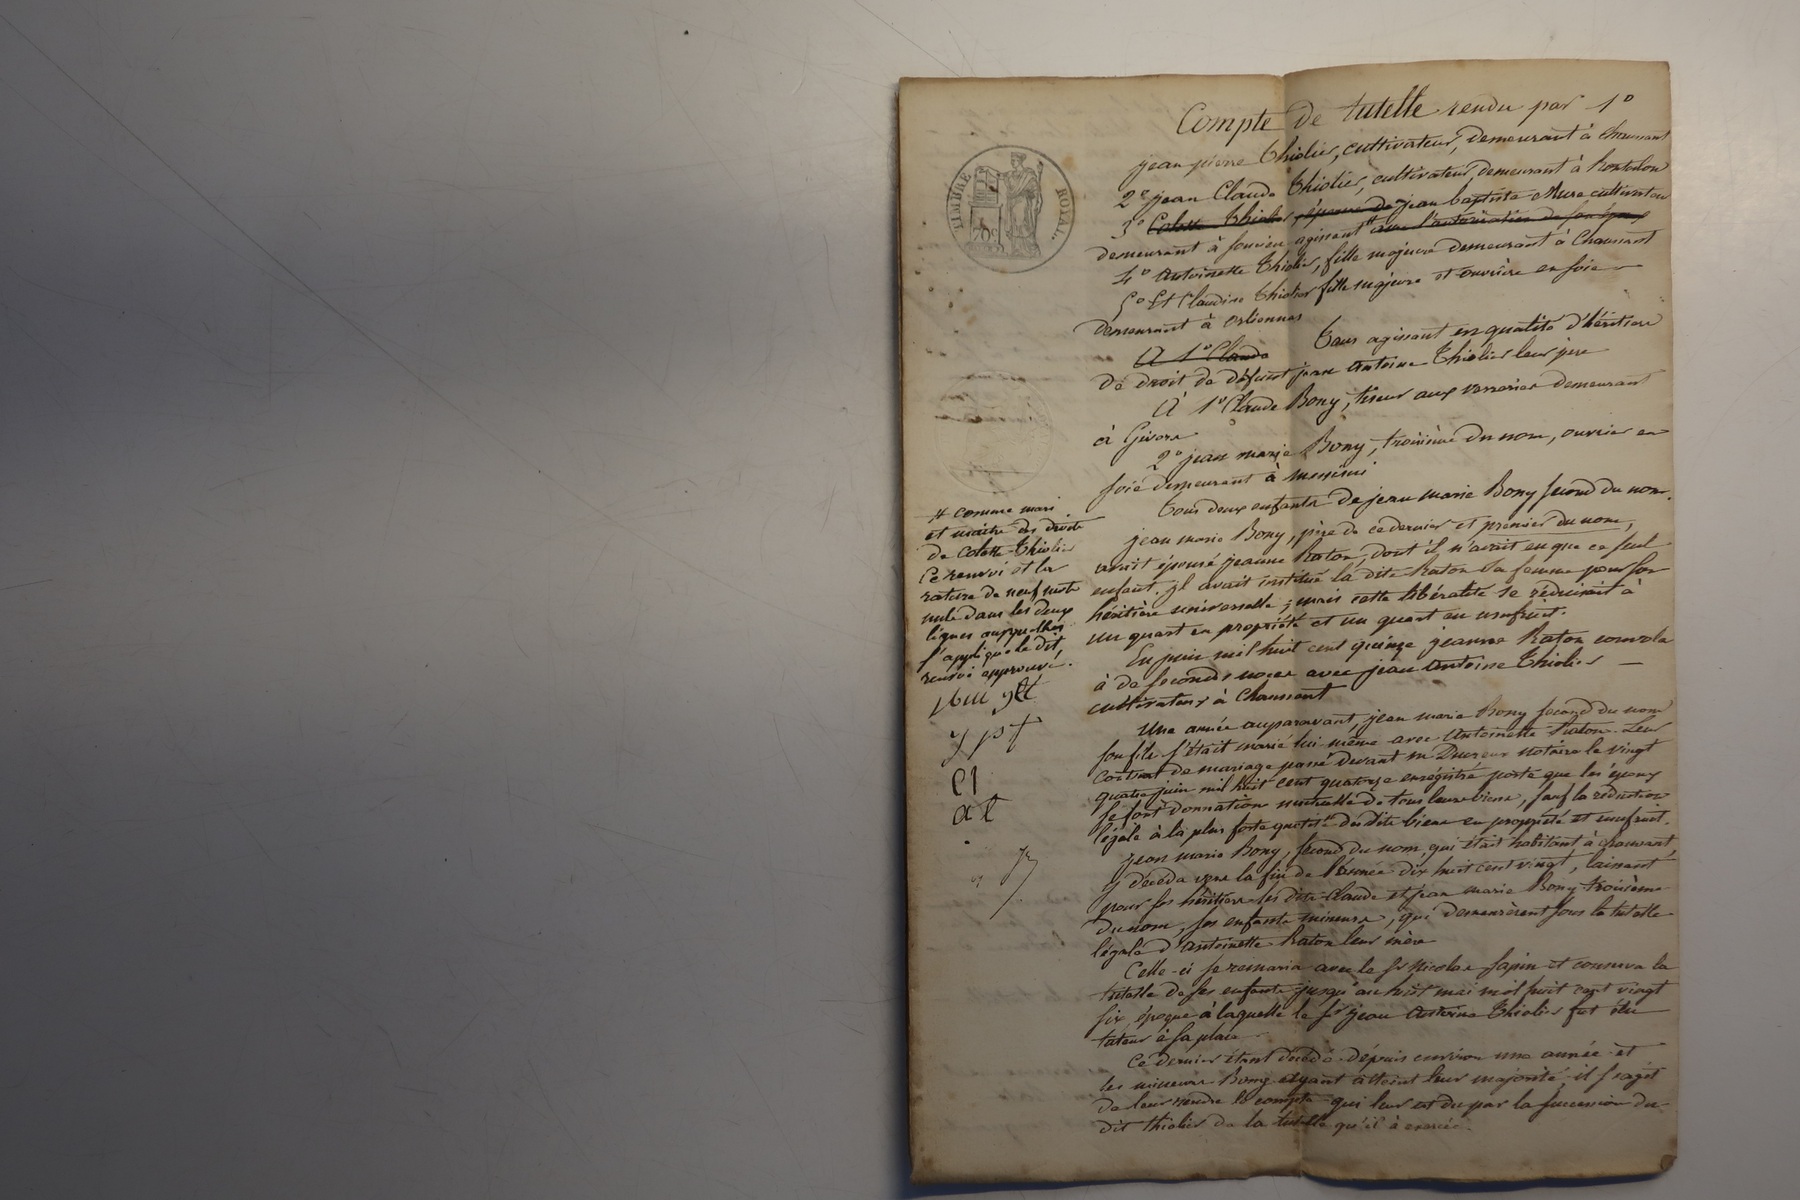 Compte de tutelle rendu par 1°
jean pierre Thiolier, cultivateur, demeurant à Chaussant
2° jean Claude Thiolier, cultivateur, demeurant à hontulon
3° Colette Thiolier, épouse de jean baptiste Mure cultivateur
demeurant à soucieu agissant # avec l'autorisation de son époux
4° Antoinette Thiolier, fille majeure demeurant à Chaussant
5° Et Claudine Thiolier fille majeure et ouvrière en soie
demeurant à orliennas
A 1° Claude Tous agissant en qualité d'héritiers
de droit de défunt jean Antoine Thiolier leur père
A 1° Claude Bony, tiseur aux verreries demeurant
à Givors
2° jean marie Bony, troisième du nom, ouvrier en
soie demeurant à messimi
Tous deux enfants de jean marie Bony second du nom.
jean marie Bony, père de ce dernier et premier du nom,
avait épousé jeanne Raton, dont il n'avait eu que ce seul
enfant. il avait institué la dite Raton sa femme pour son
héritière universelle; mais cette libéralité se réduisait à
un quart en propriété et un quart en usufruit.
En juin mil huit cent quinze jeanne Raton convola
à de secondes noces avec jean Antoine Thiolier
cultivateur à Chaussant
Une année auparavant, jean marie Bony second du nom
son fils s'était marié lui-même avec Antoinette Raton. Leur
contrat de mariage passé devant me Ducreux notaire le vingt
quatre juin mil huit cent quatorze enrégistré porte que les époux
se font donnation mutuelle de tous leurs biens, sauf la réduction
légale à la plus forte quotité des dits biens en propriété et usufruit.
jean marie Bony, second du nom, qui était habitant à chaussant,
y décéda vers la fin de l'année dix huit cent vingt, laissant
pour ses héritiers les dits Claude et jean marie Bony troisième
du nom, ses enfants mineurs, qui demeurèrent sous la tutelle
légale d'Antoinette Raton leur mère
Celle-ci se remaria avec le sr Nicolas Sapin et conserva la
tutelle de ses enfants jusqu'au huit mai mil huit cent vingt
six époque à laquelle le sr jean Antoine Thiolier fut élu
tuteur à sa place.
Ce dernier étant décédé depuis environ une année et
les mineurs Bony ayant atteint leur majorité, il s'agit
de leur rendre le compte qui leur est du par la succession du
dit thiolier de la tutelle qu'il à exercée.
TIMBRE ROYAL.
# comme mari
et maître des droits
de Colette Thiolier
Ce renvoi et la
rature de neuf mots
nuls dans les deux
lignes auxquelles
s'applique le dit
renvoi approuvé.
jpt
Ct
at